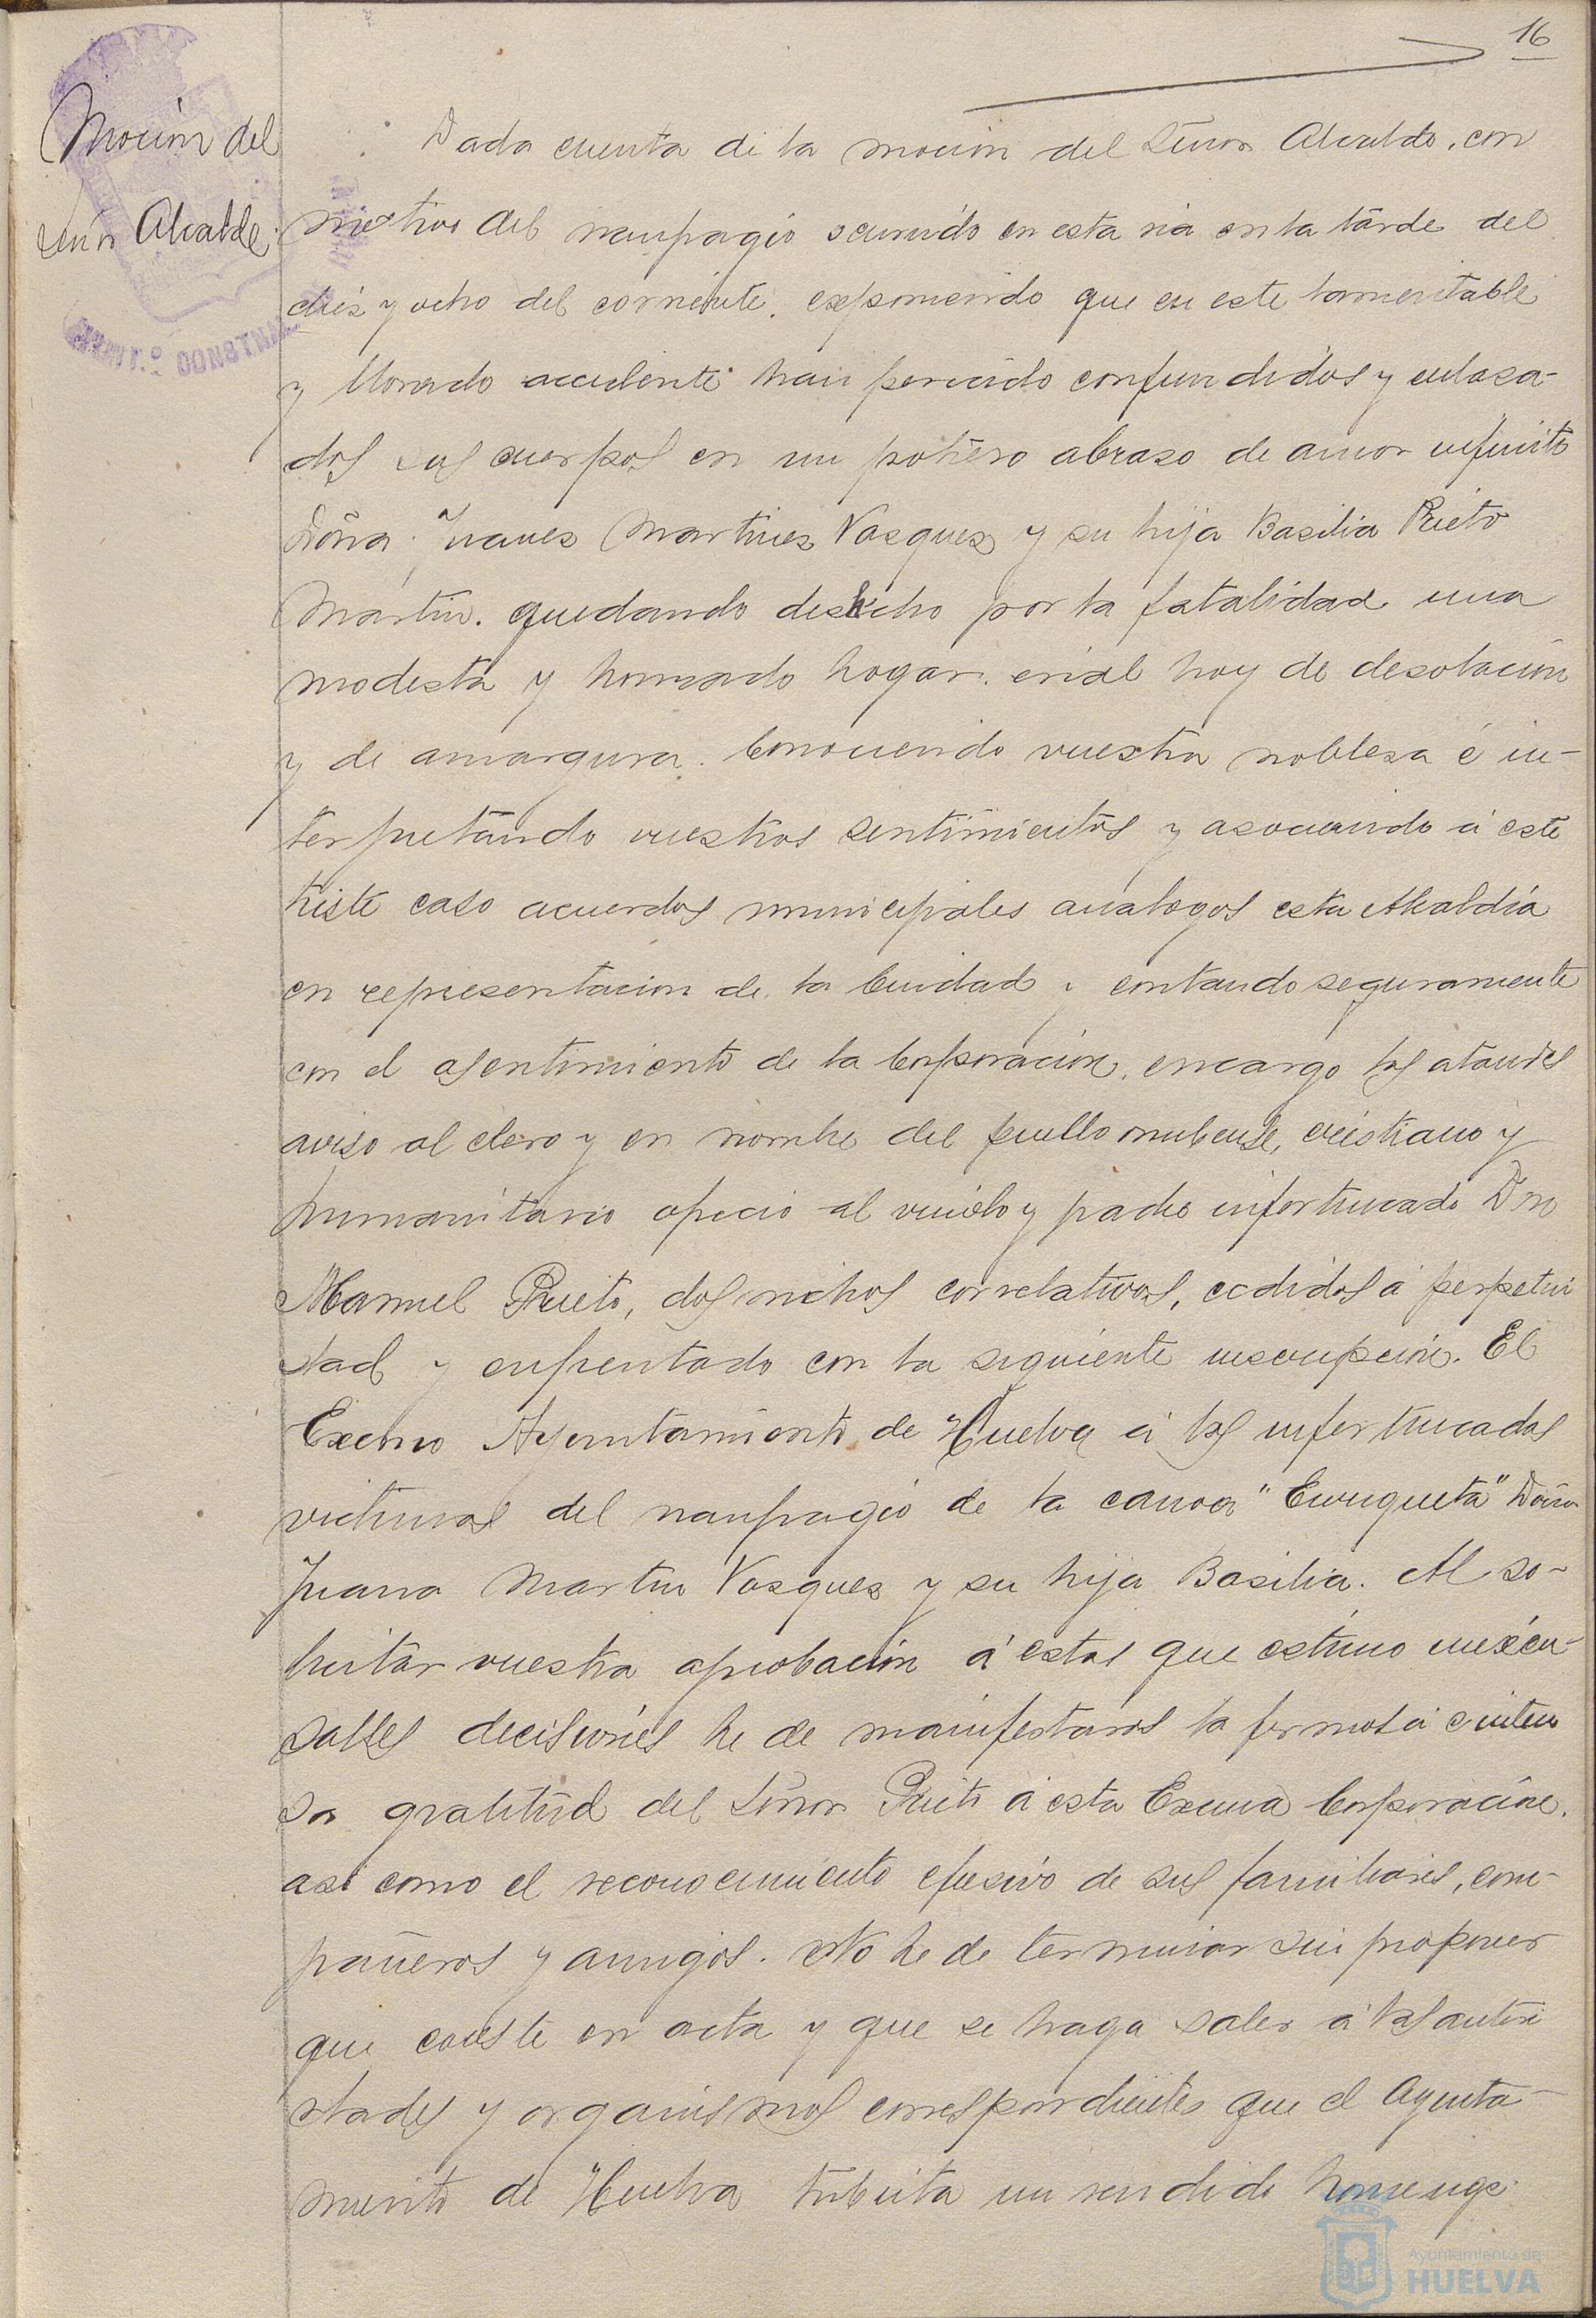 16
Moción del
Señor Alcalde.
Dada cuenta de la moción del Señor Alcalde, con
motivo del naufragio ocurrido en esta ria en la tarde del
diez y ocho del corriente, exponiendo que en este lamentable
y llorado accidente han perecido confundidos y enlaza-
dos sus cuerpos en un postrero abrazo de amor infinito
Doña Martinez Vazquez y su hija Basilia Prieto
Martin, quedando deshecho por la fatalidad una
modesta y honrado hogar, erial hoy de desolación
y de amargura. Conociendo vuestra nobleza é in-
terpretando vuestros sentimientos y asociando á este
triste caso acuerdos municipales analogos esta Alcaldía
en representación de la Ciudad y contando seguramente
con el asentimiento de la Corporación, encargo los ataudes
aviso al clero y en nombre del pueblo onubense, cristiano y
humanitario ofrecio al viudo y padre infortunado Don
Manuel Prieto, dos nichos correlativos, cedidos á perpetui
dad y enfrentado con la siguiente inscripción. El
Excmo Ayuntamiento de Huelva á las infortunadas
victimas del naufragio de la canoa "Enriqueta" Doña
Juana Martin Vazquez y su hija Basilia. Al so-
licitar vuestra aprobación á estas que estimo inexcu-
sables decisiones he de manifestaros la fermosa é inten
sa gratitud del Señor Prieto á esta Excma Corporación,
asi como el reconocimiento efusivo de sus familiares, com-
pañeros y amigos. No he de terminar sin proponer
que conste en acta y que se haga saber á las autori
dades y organismos correspondientes que el Ayunta-
miento de Huelva tributa un rendido homenage
AYUNT.º CONSTNAL
Ayuntamiento de
HUELVA